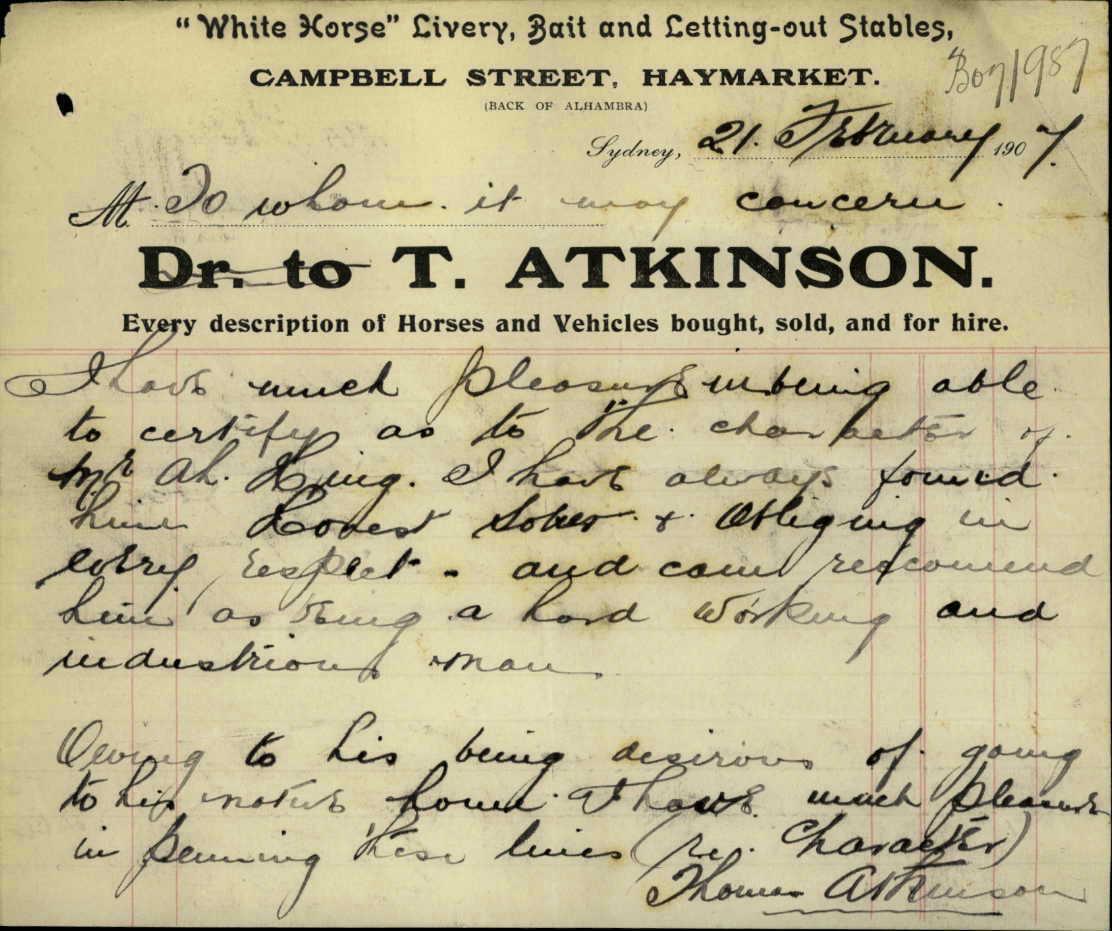 "White Horse" Livery, Bait and Letting-out Stables,
CAMPBELL STREET, HAYMARKET.
(BACK OF ALHAMBRA)
Sydney, 21. February 1907.
M. To whom it may concern.
Dr. to T. ATKINSON.
Every description of Horses and Vehicles bought, sold, and for hire.
I have much pleasure in being able
to certify as to the character of
Mr Ah. Hing. I have always found
him Honest Sober & Obliging in
every respect - and can reccomend
him as being a hard working and
industrious man
Owing to his being desirous of going
to his native home I have much pleasure
in penning these lines (re. Character)
Thomas Atkinson